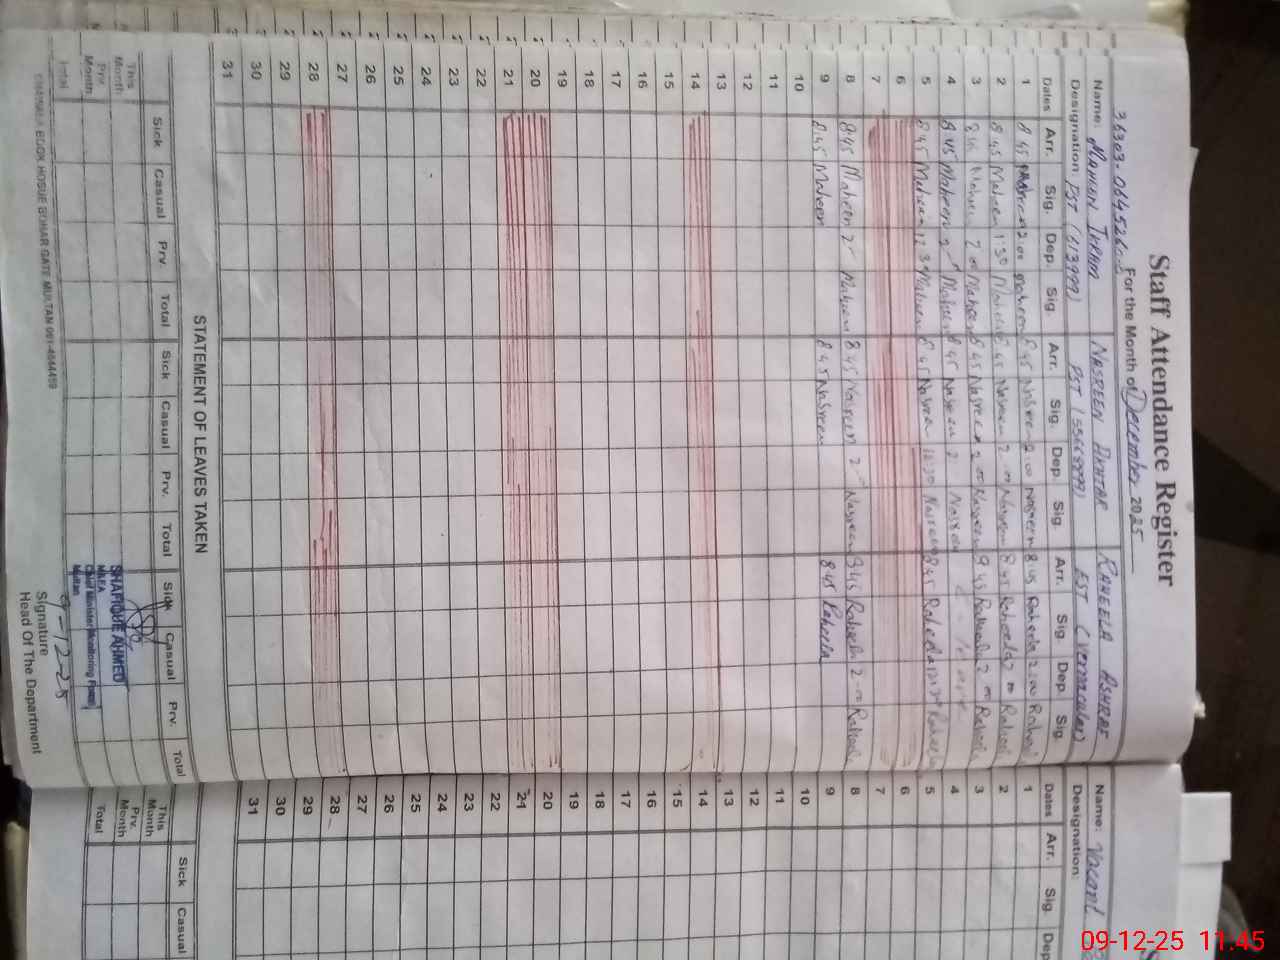 Staff Attendance Register
For the Month of December 2025
36303-0645260-8
Name: Maheen Ikram NASREEN AKHTAR RAHEELA ASHRAF
Designation: PST (613999) PST EST (Vernacular)
Dates Arr. Sig. Dep. Sig. Arr. Sig. Dep. Sig. Arr. Sig. Dep. Sig.
1 8 45 2:00 8 45 Nasreen 2:00 Nasreen 8 45 Raheela 2:00
2 8 45 Maheen 1:30 8 45 Nasreen 2 00 Nasreen 8 45
3 8 45 2 00 Maheen 8 45 Nasreen 2 00 Nasreen 8 45 2 00
4 8 45 Maheen 2 Maheen 8 45 Nasreen 2 Nasreen
5 8 45 Maheen 12:30 Maheen 8 45 Nasreen 12:30 Nasreen 8 45 Raheela 12:30
6
7
8 8 45 Maheen 2 Maheen 8 45 Nasreen 2 Nasreen 8 45 Raheela 2-00
9 8:45 Maheen 8 45 Nasreen 8 45 Raheela
10
11
12
13
14
15
16
17
18
19
20
21
22
23
24
25
26
27
28
29
30
31
STATEMENT OF LEAVES TAKEN
Sick Casual Prv. Total Sick Casual Prv. Total Sick Casual Prv. Total
This Month
Prv. Month
Total
SHAFIQUE AHMED
M&EA
Chief Minister Monitoring Force
Multan
9-12-25
Signature
Head Of The Department
BOOK HOSUE BOHAR GATE MULTAN 061-4544459
Name: Vacant
Designation:
Dates Arr. Sig. Dep
1
2
3
4
5
6
7
8
9
10
11
12
13
14
15
16
17
18
19
20
21
22
23
24
25
26
27
28
29
30
31
Sick Casual
This Month
Prv. Month
Total
09-12-25 11:45